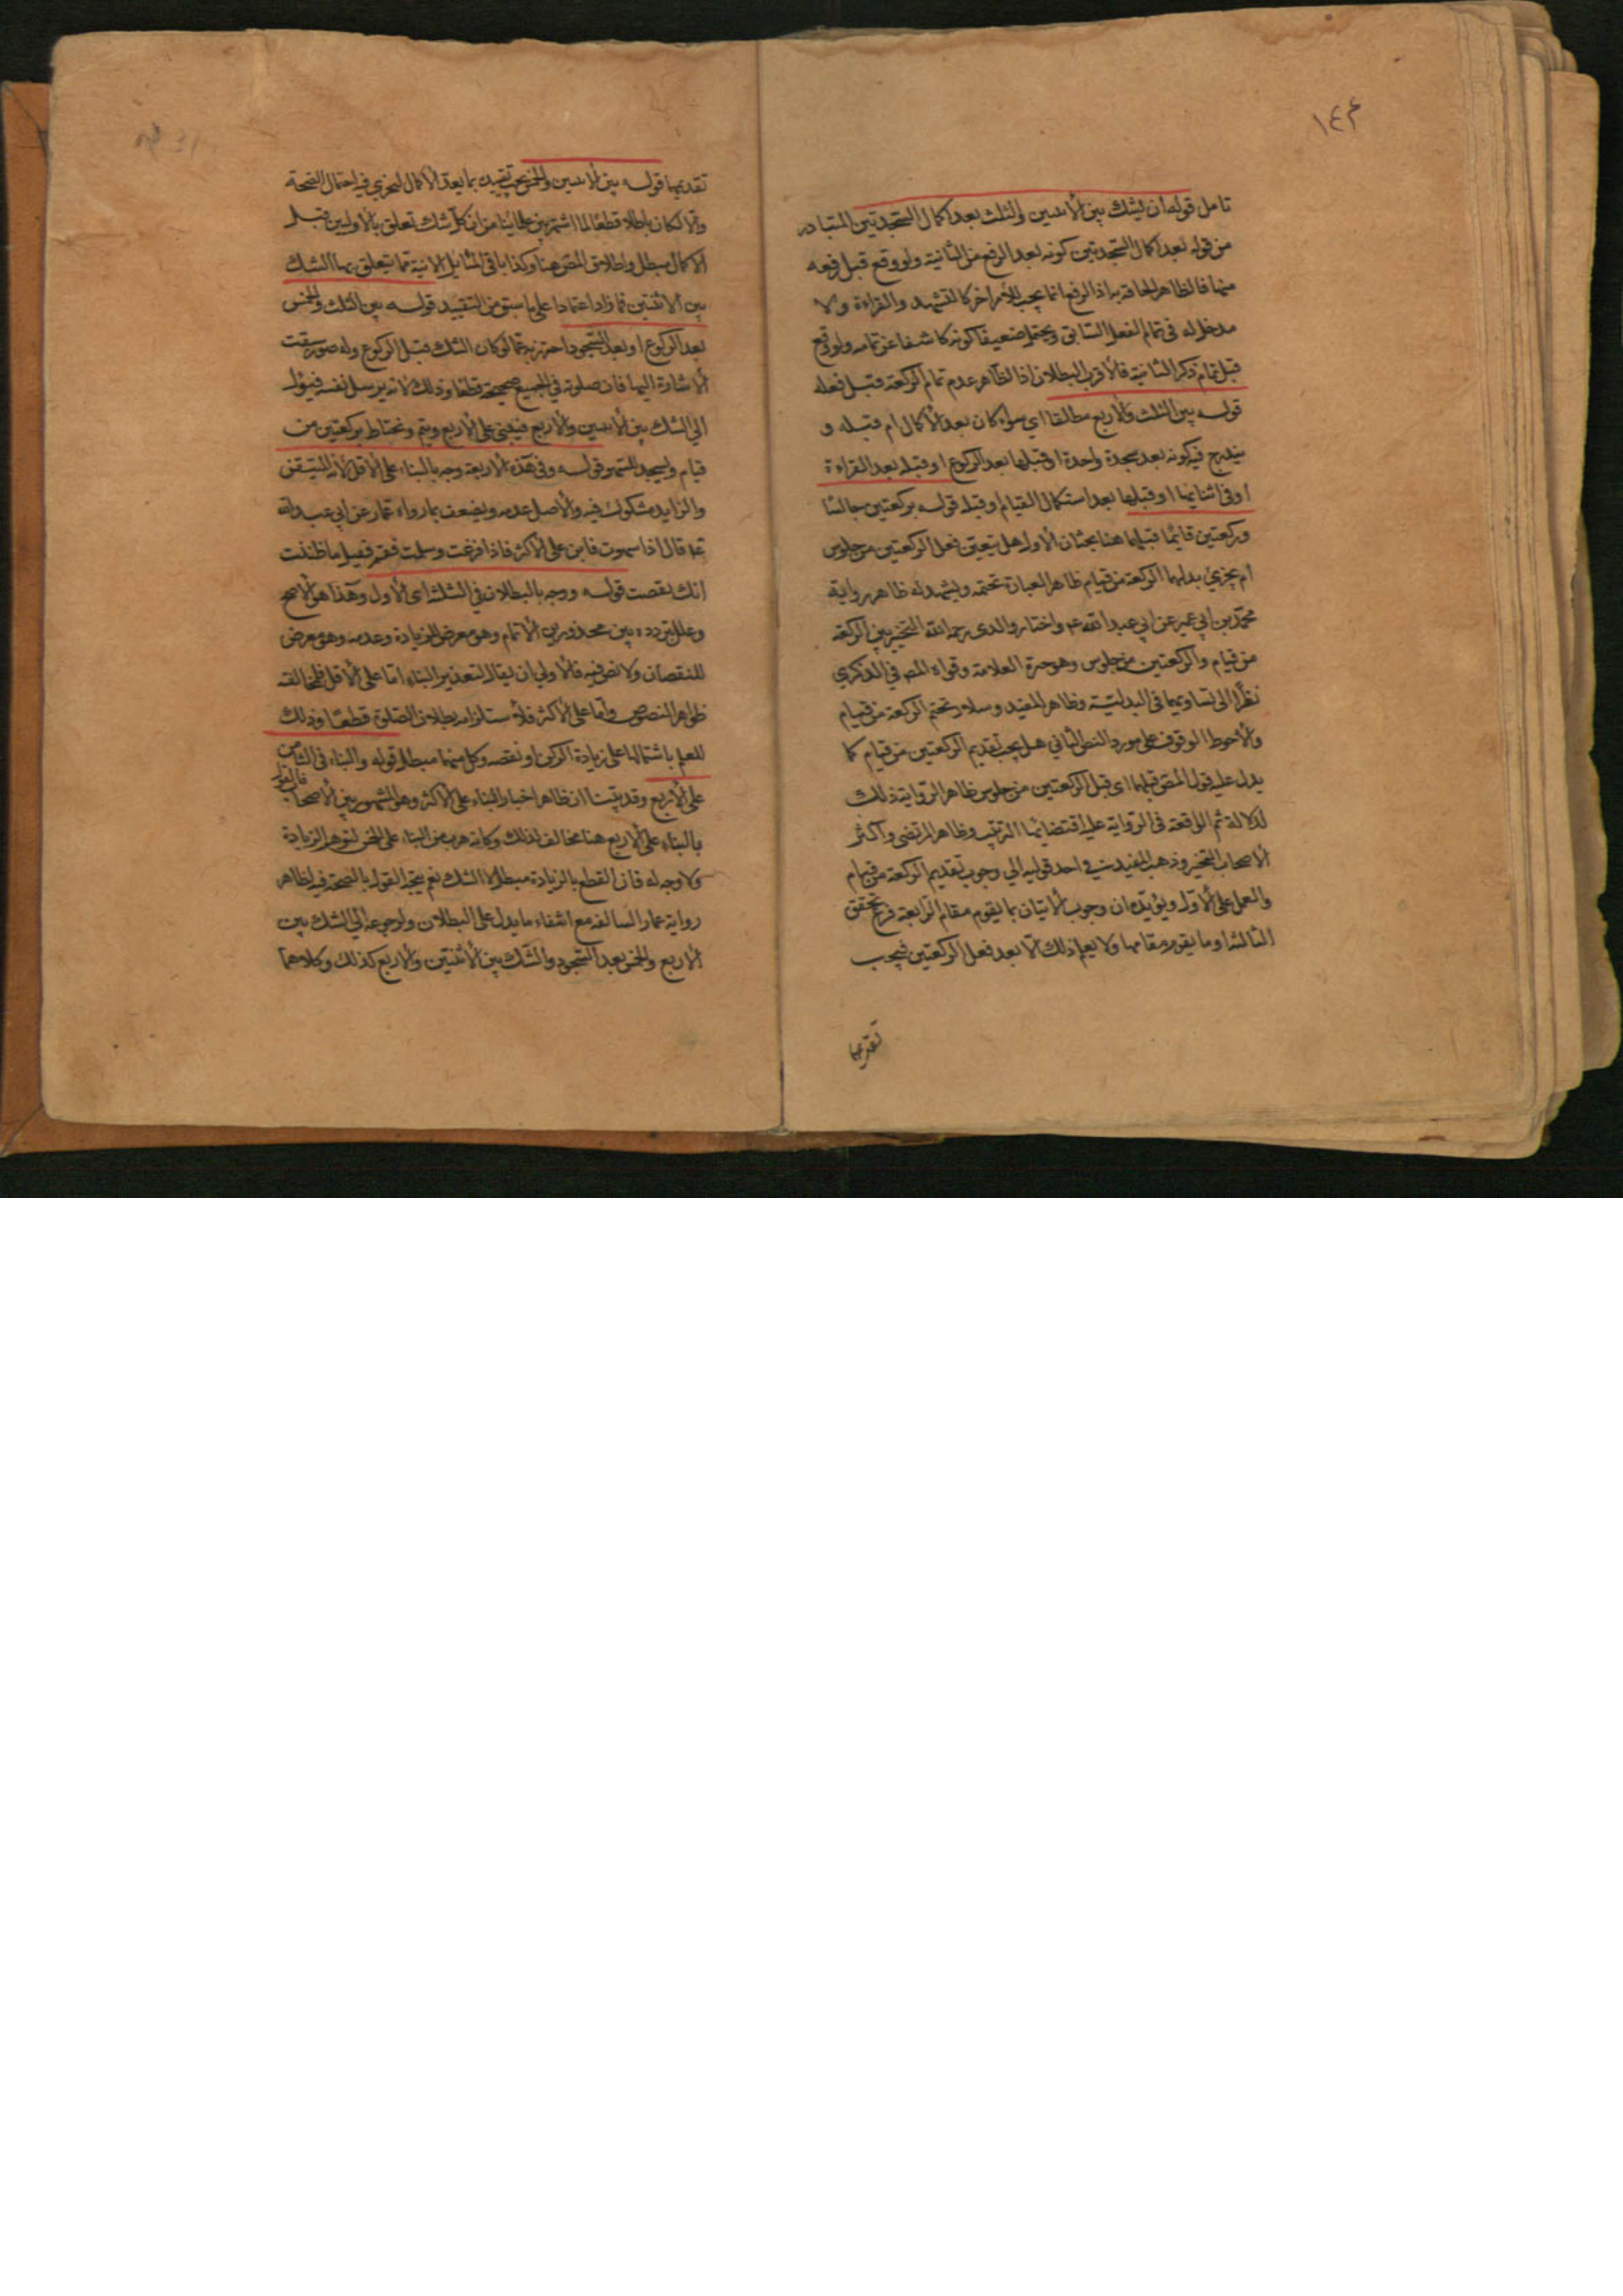 ١٤٢
تامل قوله ان يشك بين الاثنين والثلث بعد اكمال السجدتين المتبادر
من قوله بعد اكمال السجدتين كونه بعد الرفع من الثانية ولو وقع قبل رفعه
منها فالظاهر الحاقه به اذ الرفع انما يجب لأمر اخر كالتشهد والقراءة ولا
مدخل له في تمام الفعل السابق ويحتمل ضعيفا كونه كاشفا عن تمامه ولو وقع
قبل تمام ذكر الثانية فالأقرب البطلان اذ الظاهر عدم تمام الركعة قبل فعله
قوله بين الثلث والأربع مطلقا اي سواء كان بعد الأكمال ام قبله و
يندرج فيه كونه بعد سجدة واحدة او قبلها بعد الركوع او قبله بعد القراءة
او في اثنائها او قبلها بعد استكمال القيام او قبله قوله بركعتين جالسا
وركعتين قائما قبلهما هنا بحثان الأول هل يتعين فعل الركعتين من جلوس
ام يجزئ بدلهما الركعة من قيام ظاهر العبارة تحتمه ويشهد له ظاهر رواية
محمد بن ابي عمير عن ابي عبد الله ع واختار والدي رحمه الله التخيير بين الركعة
من قيام والركعتين من جلوس وهو خيرة العلامة وقواه المص في الذكرى
نظرا الى تساويهما في البدلية وظاهر المفيد وسلار تحتم الركعة من قيام
والأحوط الوقوف على مورد النص الثاني هل يجب تقديم الركعتين من قيام كما
يدل عليه قول المص قبلهما اي قبل الركعتين من جلوس ظاهر الرواية ذلك
لدلالة ثم الواقعة في الرواية عليه اقتضائها الترتيب وظاهر المرتضى واكثر
الأصحاب التخيير وذهب المفيد في احد قوليه الي وجوب تقديم الركعة من قيام
والعمل على الأول ويؤيده ان وجوب الأتيان بما يقوم مقام الرابعة فرع تحقق
الثالثة او ما يقوم مقامها ولا يعلم ذلك الا بعد فعل الركعتين فيجب
تقديمها
تقديمها قوله بين الاثنين والخمس يجب تقييده بما بعد الأكمال ليجري فيه احتمال الصحة
والا لكان باطلا قطعا لما اشتهر بين علمائنا من ان كل شك تعلق بالأوليين قبل
الاكمال مبطل واطلاق المص هنا وكذا باقي المسايل الاتية مما تتعلق بها الشك
بين الاثنتين فما زاد اعتمادا على ما سبق من التقييد قوله بين الثلث والخمس
بعد الركوع او بعد السجود احترز به عما لو كان الشك قبل الركوع وله صور سبقت
الاشارة اليها فان صلوته في الجميع صحيحة قطعا وذلك لانه يرسل نفسه فيؤل
الي الشك بين الاثنين والأربع فيبنى على الأربع ويتم ويحتاط بركعتين من
قيام ويسجد للسهو قوله وفي هذه الأربعة وجه بالبناء على الأقل لأنه المتيقن
والزايد مشكوك فيه والأصل عدمه ويضعف بما رواه عمار عن ابي عبد الله
ع قال اذا سهوت فابن على الأكثر فاذا فرغت وسلمت فقم فصل ما ظننت
انك نقصت قوله ووجه بالبطلان في الثلثة اي الأول وهذا هو الأصح
وعلل بتردده بين محذورين الأتمام وهو معرض للزيادة وعدمه وهو معرض
للنقصان ولا نص فيه فالأولي ان يقال لتعذير البناء اما على الأقل فلمخالفة
ظواهر النصوص واما على الأكثر فلأستلزامه بطلان الصلوة قطعا وذلك
للعلم باشتمالها على زيادة الركن او نقصه وكل منهما مبطل قوله والبناء في الثامن
على الأربع وقد بينا ان ظاهر اخبار البناء على الاكثر وهو المشهور بين الأصحاب فالقول
بالبناء على الأربع هنا مخالف لذلك وكانه هرب من البناء على الخمس لتوهم الزيادة
ولا وجه له فان القطع بالزيادة مبطل لا الشك نعم يتجه القول بالصحة فيه لظاهر
رواية عمار السالفه مع انتفاء ما يدل على البطلان ولرجوعه الي الشك بين
الأربع والخمس بعد السجود والشك بين الأثنتين والأربع كذلك وكلاهما